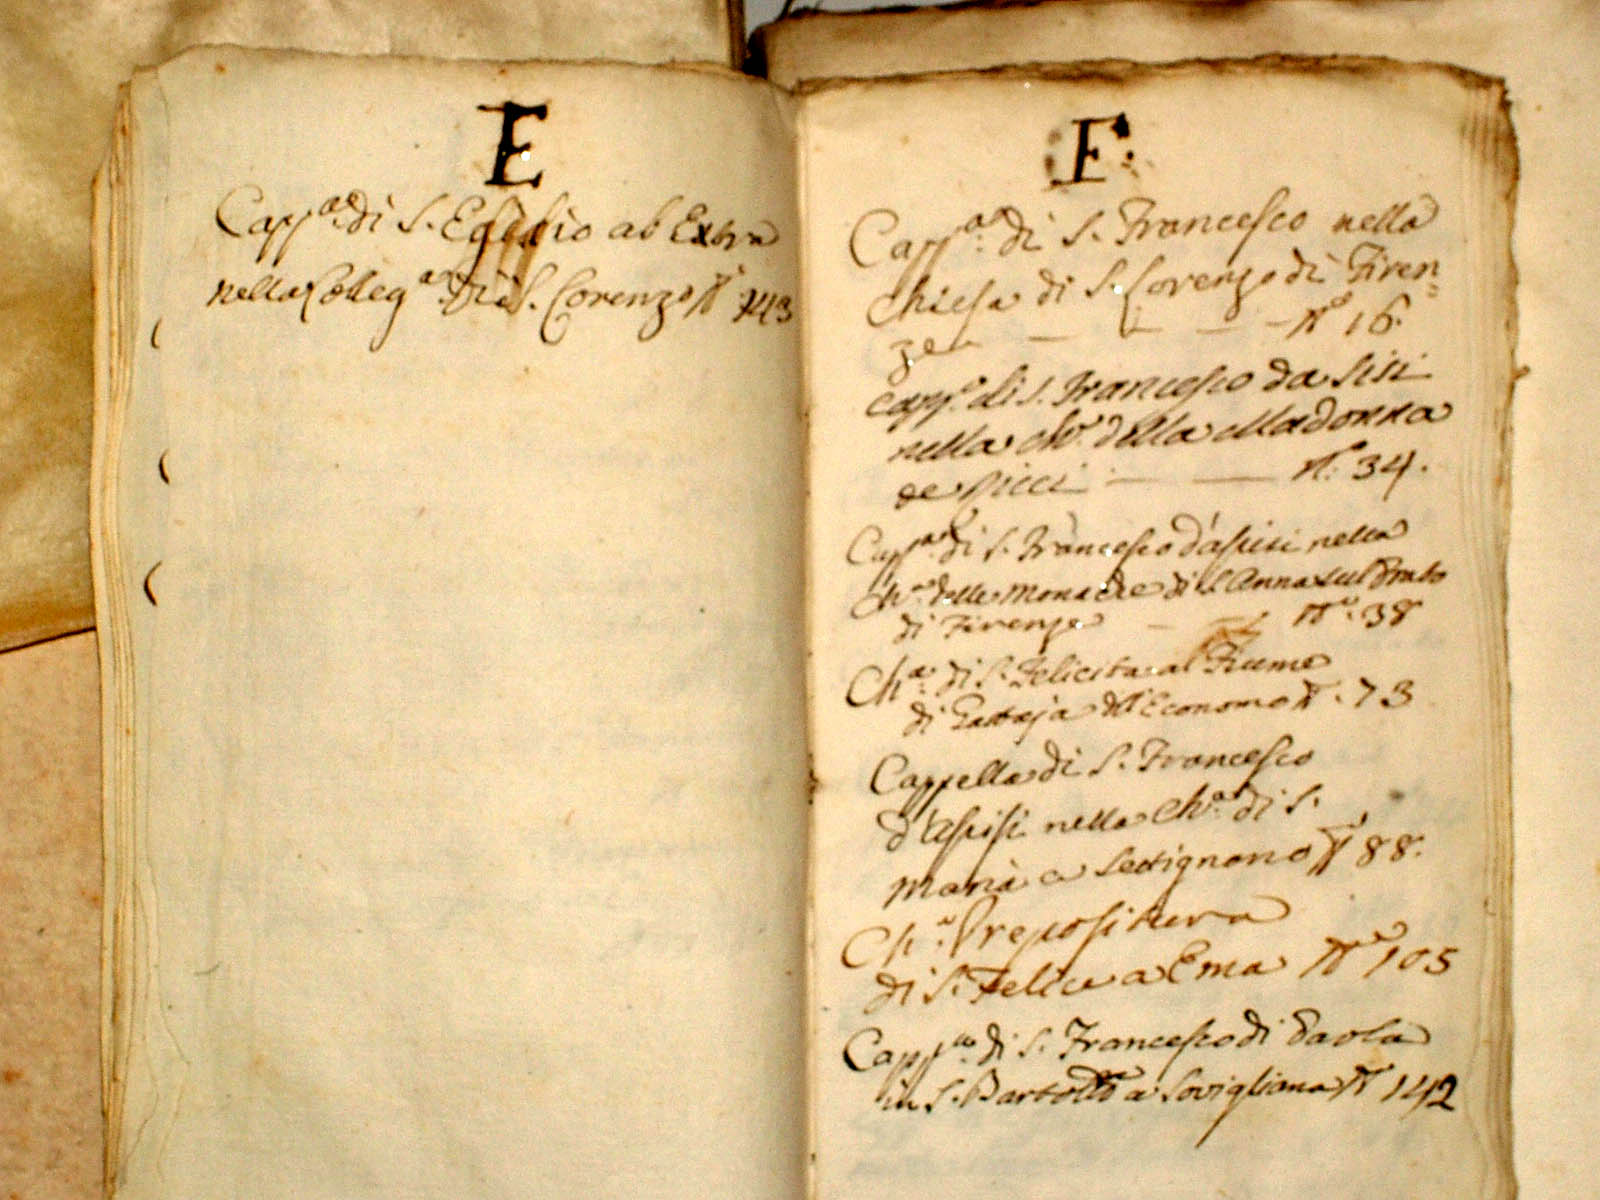 E
Capp.a di S. Egidio ab Extra
nella Colleg.a di S. Lorenzo N.o 143
F.
Capp.a di S. Francesco nella
Chiesa di S. Lorenzo di Firen=
ze — — — N.o 16.
Capp.a di S. Francesco da Sisi
nella Ch.a della Madonna
de Ricci — — N.o 34.
Capp.a di S. Francesco d'Asisi nella
Ch.a delle Monache di S. Anna sul Prato
di Firenze — — N.o 38
Ch.a di S. Felicita al Fiume
di Economo N.o 73
Cappella di S. Francesco
d'Asisi nella Ch.a di S.
Maria a Settignano N.o 88.
Ch.a Prepositura
di S. Felice a Ema N.o 105
Capp.a di S. Francesco di Paola
in S. Bartolo a Sovigliana N.o 142